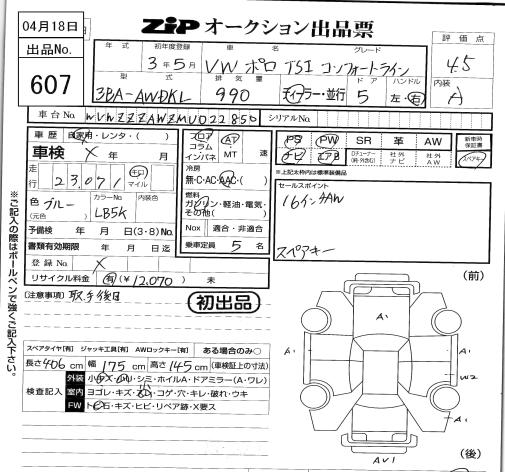 04月18日
出品No.
607
ZIP オークション出品票
年式 初年度登録 車名 グレード 評価点
3年5月 VW ポロ TSI コンフォートライン 4.5
型式 排気量 ドア ハンドル 内装
3BA-AWDKL 990 ディーラー・並行 5 左・右 A
車台No. WVWZZZAWZMU022850 シリアルNo.
車歴 自家用・レンタ・( )
車検 × 年 月
走行 23,071 キロ マイル
色 ブルー カラーNo. LB5K 内装色
(元色)
予備検 年 月 日(3・8)No.
書類有効期限 年 月 日迄
登録No. ×
リサイクル料金 有(¥12,070) 未
フロア コラム インパネ AT MT 速
冷房 無・C・AC・AAC・( )
燃料 ガソリン・軽油・電気・その他( )
Nox 適合・非適合
乗車定員 5 名
PS PW SR 革 AW 新車時保証書
ナビ エアB Dチューナー(純・外含む) 社外ナビ 社外AW スペアキー
*上記太枠内は標準装備品
セールスポイント
16インチAW
スペアキー
(注意事項) 取,手後日
初出品
(前)
スペアタイヤ[有] ジャッキ工具[有] AWロックキー[有] ある場合のみ○
長さ 406 cm 幅 175 cm 高さ 145 cm (車検証上の寸法)
検査記入
外装 小キズ・凹・シミ・ホイルA・ドアミラー(A・ワレ)
室内 ヨゴレ・キズ・凹・コゲ・穴・キレ・破れ・ウキ
FW トビ石・キズ・ヒビ・リペア跡・X要ス
A1
A1
A1
W2
A1
AU1
(後)
※ご記入の際はボールペンで強くご記入下さい。